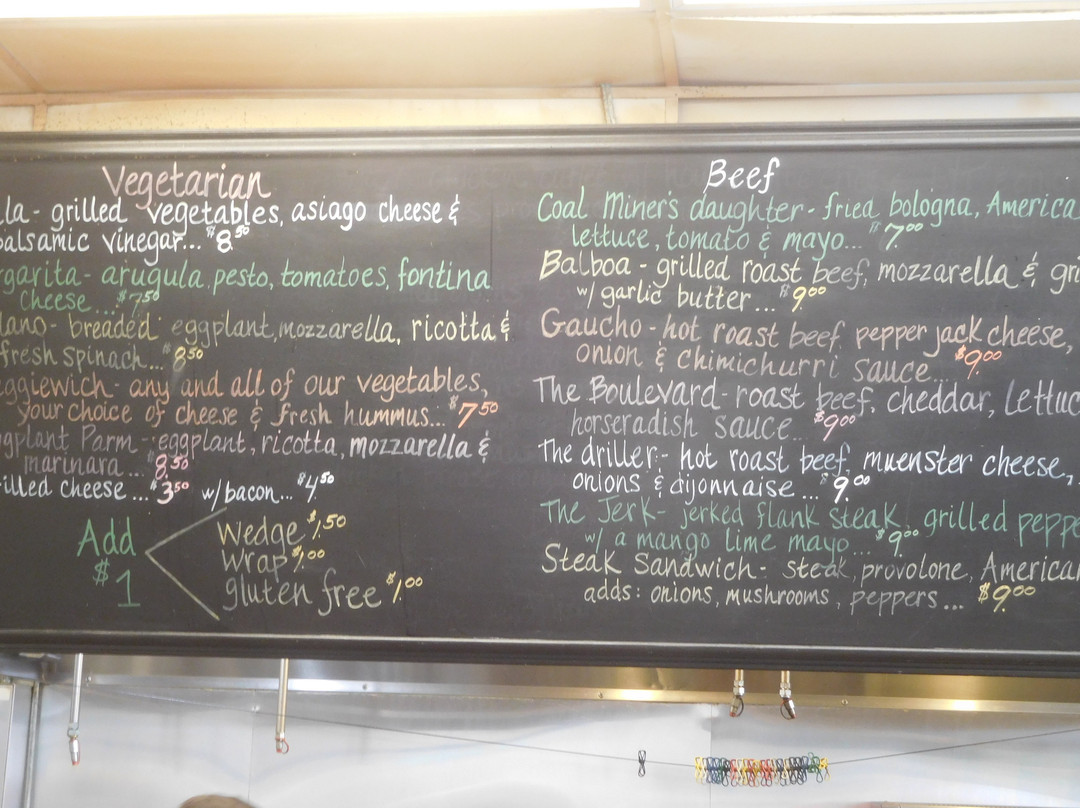 Vegetarian
la - grilled vegetables, asiago cheese &
balsamic vinegar... $8.50
rgarita - arugula, pesto, tomatoes, fontina
cheese... $7.50
lano - breaded eggplant, mozzarella, ricotta &
fresh spinach... $8.50
eggiewich - any and all of our vegetables,
your choice of cheese & fresh hummus... $7.50
ggplant Parm - eggplant, ricotta, mozzarella &
marinara... $8.50
illed cheese... $3.50 w/bacon... $4.50
Add
$1
Wedge $1.50
Wrap $1.00
gluten free $1.00
Beef
Coal Miner's daughter - fried bologna, America
lettuce, tomato & mayo... $7.00
Balboa - grilled roast beef, mozzarella & gri
w/ garlic butter... $9.00
Gaucho - hot roast beef, pepper jack cheese,
onion & chimichurri sauce... $9.00
The Boulevard - roast beef, cheddar, lettuc
horseradish sauce... $9.00
The driller - hot roast beef, muenster cheese,
onions & dijonnaise... $9.00
The Jerk - jerked flank steak, grilled peppe
w/ a mango lime mayo... $9.00
Steak Sandwich - steak, provolone, American
adds: onions, mushrooms, peppers... $9.00